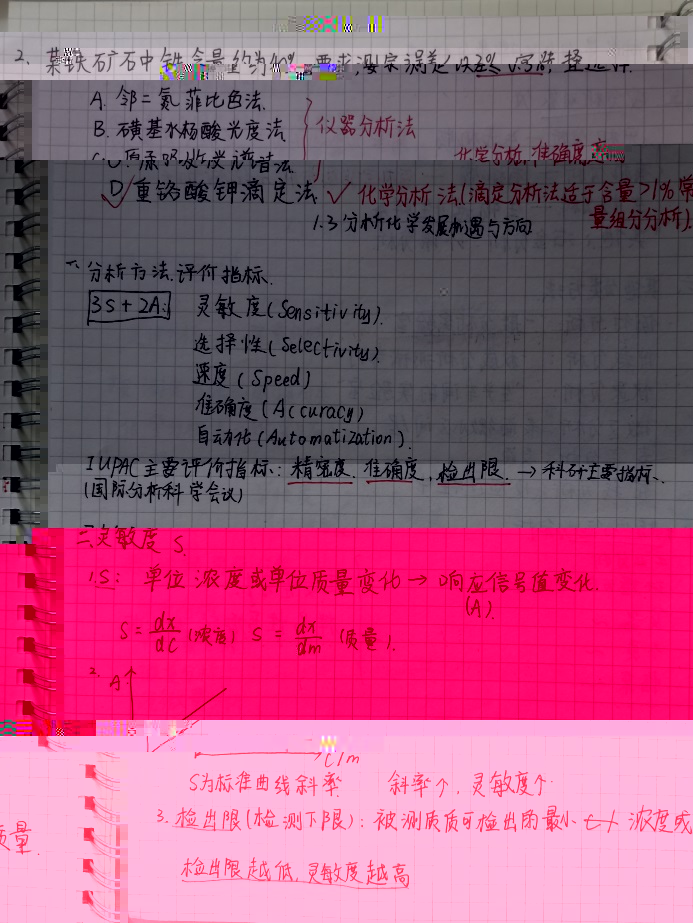 2、某铁矿石中铁含量约为40%,要求测定误差
A. 邻二氮菲比色法
B. 磺基水杨酸光度法
仪器分析法
化学分析,准确度高
D 重铬酸钾滴定法 ✓ 化学分析法(滴定分析法适于含量>1%常
量组分分析).
1.3 分析化学发展机遇与方向
一、分析方法评价指标.
3S+2A: 灵敏度(Sensitivity)
选择性(Selectivity)
速度(Speed)
准确度(Accuracy)
自动化(Automatization).
IUPAC主要评价指标:精密度.准确度,检出限. →科研主要指标.
(国际分析科学会议)
二灵敏度 S.
1.S: 单位浓度或单位质量变化→响应信号值变化.
(A).
S=dx/dc(浓度) S=dx/dm(质量).
2. A
c/m
S为标准曲线斜率 斜率↑,灵敏度↑.
3.检出限(检测下限):被测质质可检出的最小 浓度或
质量.
检出限越低,灵敏度越高